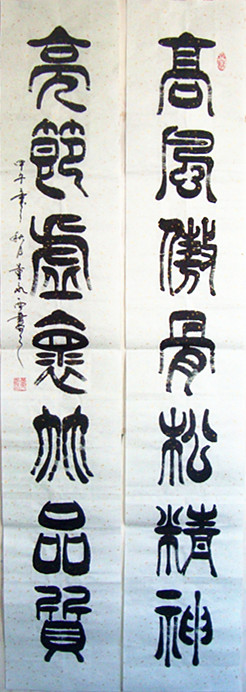 高風傲骨松精神
亮節虛懷竹品質
甲午年秋月
書